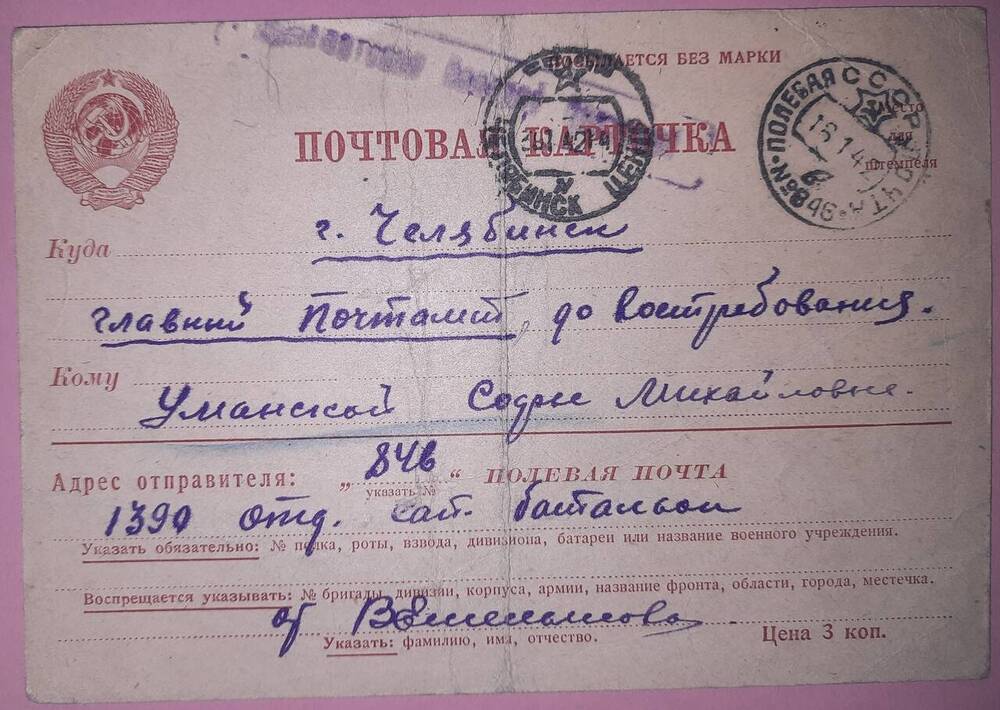 ПОСЫЛАЕТСЯ БЕЗ МАРКИ
ПОЧТОВАЯ КАРТОЧКА
Место
для
почтштемпеля
ПОЛЕВАЯ
846
ЧЕЛЯБИНСК
Куда г. Челябинск
главный Почтамт, до востребования.
Кому Уманской Софье Михайловне.
Адрес отправителя: „ 846 “ ПОЛЕВАЯ ПОЧТА
указать №
1390 отд. сап. батальон
Указать обязательно: № полка, роты, взвода, дивизиона, батареи или название военного учреждения.
Воспрещается указывать: № бригады, дивизии, корпуса, армии, название фронта, области, города, местечка.
от
Указать: фамилию, имя, отчество.
Цена 3 коп.